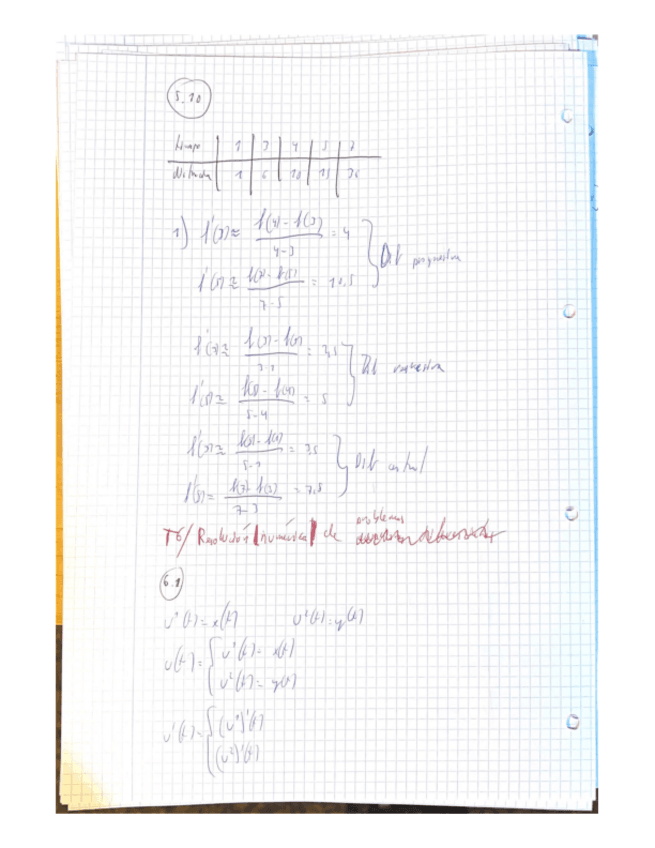 5.10
Tiempo | 1 | 3 | 4 | 5 | 7
Distancia | 1 | 6 | 10 | 15 | 36
1) f'(3) ≈ f(4) - f(3) / 4-3 = 4
f'(5) ≈ f(7) - f(5) / 7-5 = 10.5
Dif progresiva
f'(3) ≈ f(3) - f(1) /
f'(5) ≈ f(5) - f(4) / 5-4 = 5
Dif regresiva
f'(3) ≈ f(5) - f(1) / 5-1 = 3.5
f'(5) ≈ f(7) - f(3) / 7-3 = 7.5
Dif central
T6/ Resolución numérica de problemas
6.1
u¹(t) = x(t) u²(t) = y(t)
u(t) = { u¹(t) = x(t)
u²(t) = y(t)
u'(t) = { (u¹)'(t)
(u²)'(t)